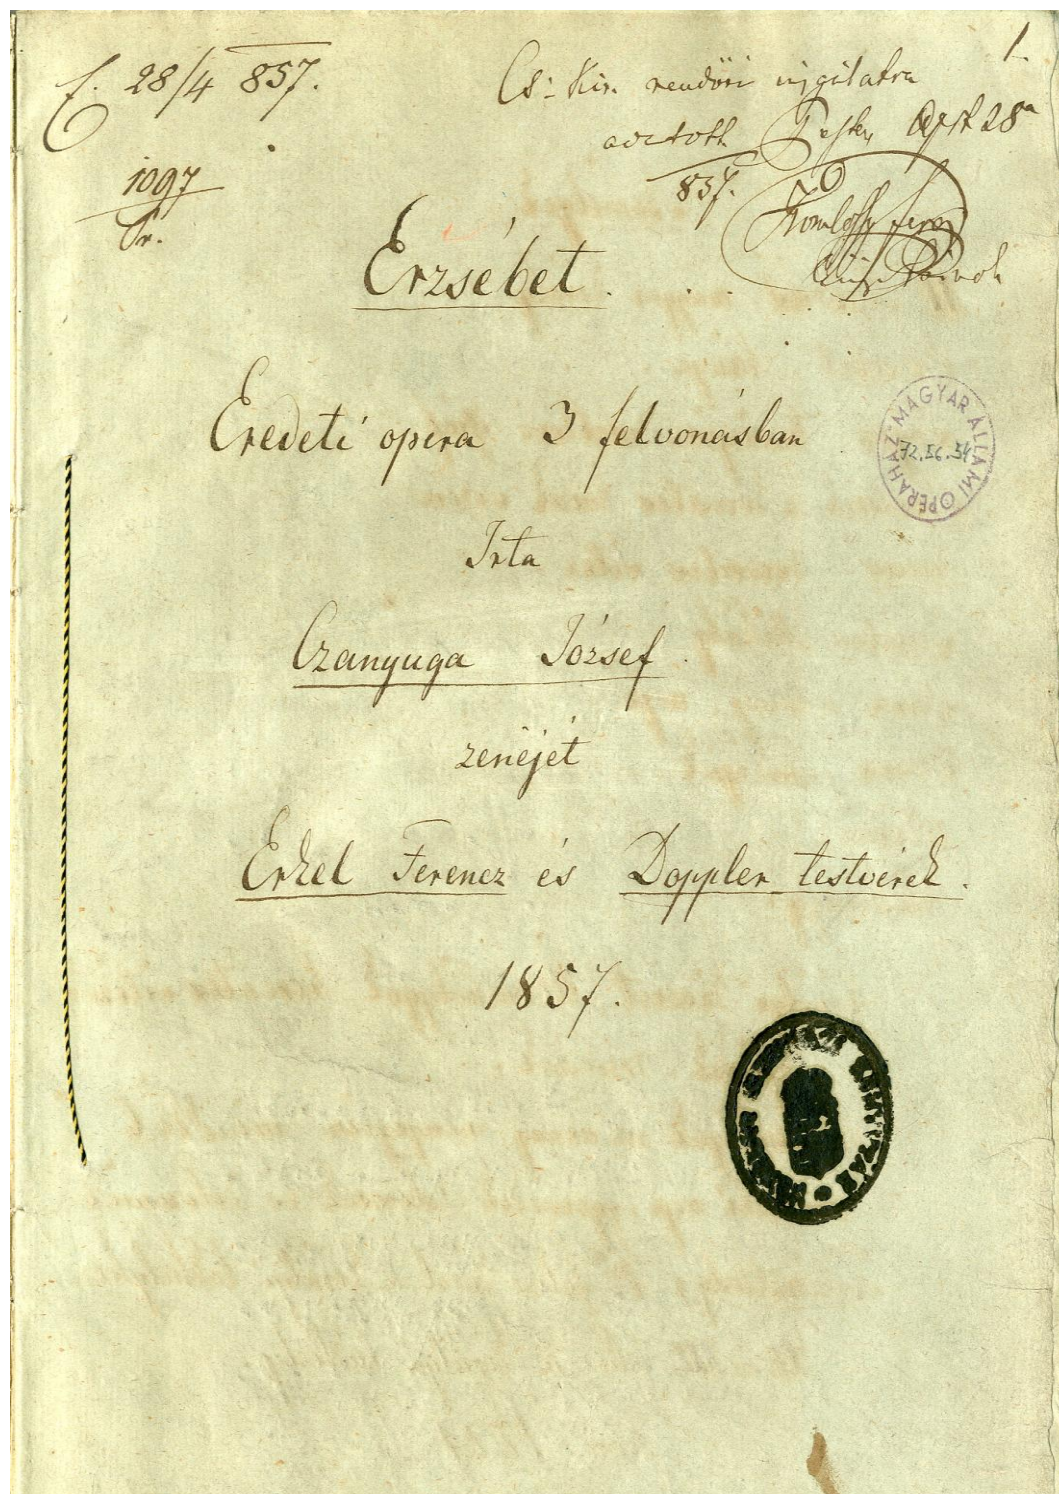 1.
f. 28/4 857.
Cs. Kir. rendőri
Pesten 28
857.
1097
Pr.
Erzsébet.
Eredeti opera 3 felvonásban
MAGYAR ÁLLAMI OPERAHÁZ
72.56.54
Irta
Czanyuga József
zenéjét
Erkel Ferencz és Doppler testvérek.
1857.